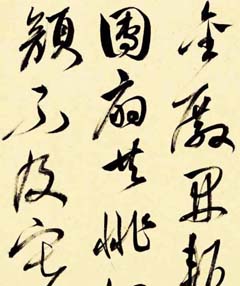 金殿開
團扇共徘
顏不及寒